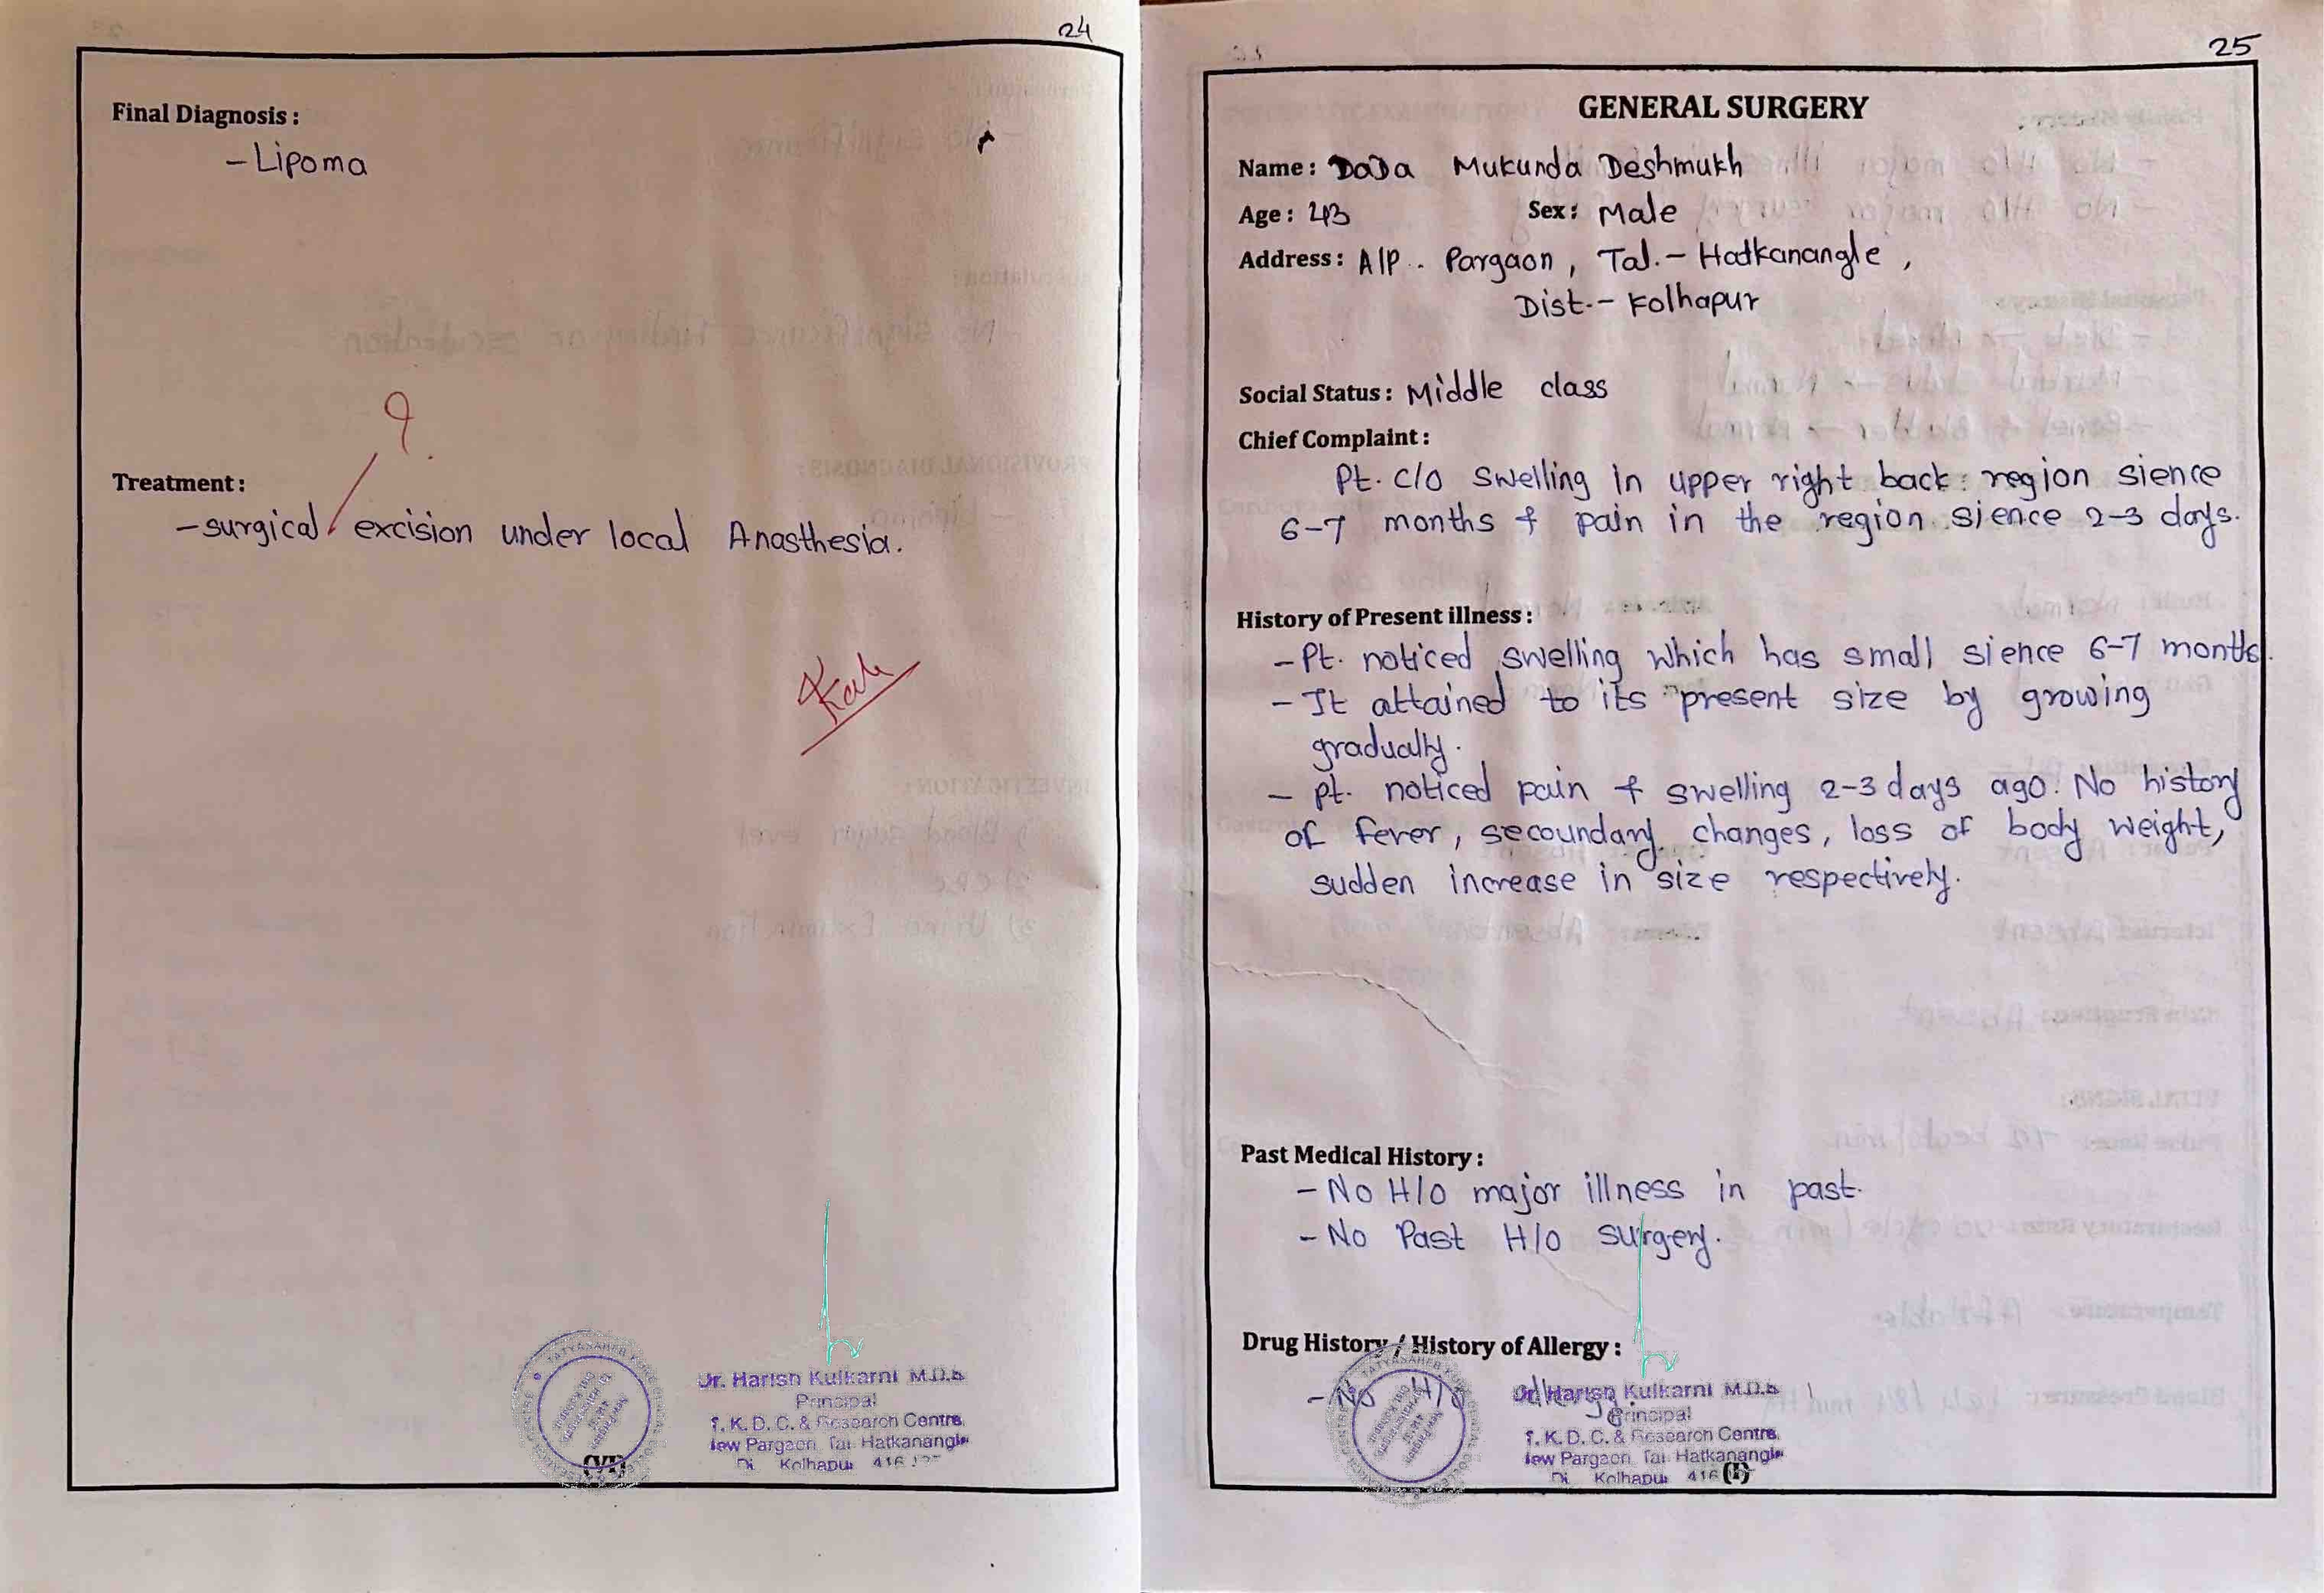 24
Final Diagnosis :
- Lipoma
Treatment :
- surgical excision under local Anasthesia.
Dr. Harish Kulkarni M.D.S.
Principal
T. K. D. C. & Research Centre,
New Pargaon, Tal. Hatkanangle
Di Kolhapur 416
(VI)
25
GENERAL SURGERY
Name : DaDa Mukunda Deshmukh
Age : 43 Sex : Male
Address : A/P. Pargaon, Tal.- Hatkanangle,
Dist.- Kolhapur
Social Status : Middle class
Chief Complaint :
Pt. c/o swelling in upper right back region sience
6-7 months & pain in the region sience 2-3 days.
History of Present illness :
- Pt. noticed swelling which has small sience 6-7 months.
- It attained to its present size by growing
gradually.
- pt. noticed pain & swelling 2-3 days ago. No history
of fever, secoundary changes, loss of body weight,
sudden increase in size respectively.
Past Medical History :
- No H/o major illness in past.
- No Past H/o surgery.
Drug History / History of Allergy :
- No H/o allergy
Dr. Harish Kulkarni M.D.S.
Principal
T. K. D. C. & Research Centre,
New Pargaon, Tal. Hatkanangle
Di Kolhapur 416
(I)